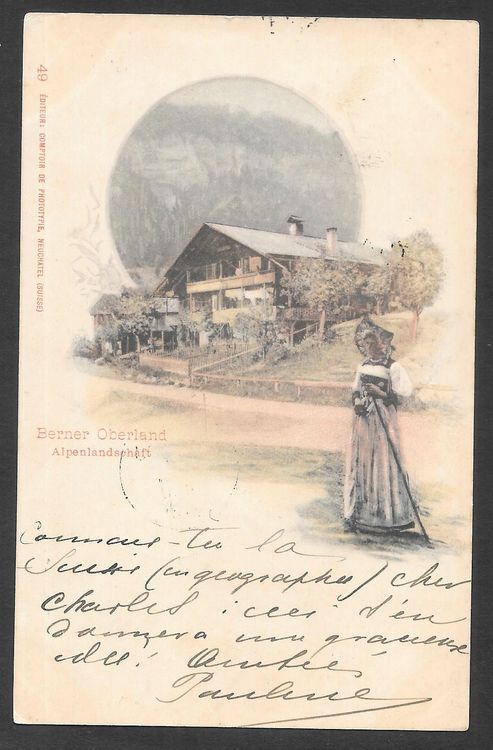 49 ÉDITEUR: COMPTOIR DE PHOTOTYPIE, NEUCHATEL (SUISSE)
Berner Oberland
Alpenlandschaft
Connais-tu la
Suisse (en géographie) cher
Charles; ceci t'en
donnera une gracieuse
idée! Amitiés
Pauline